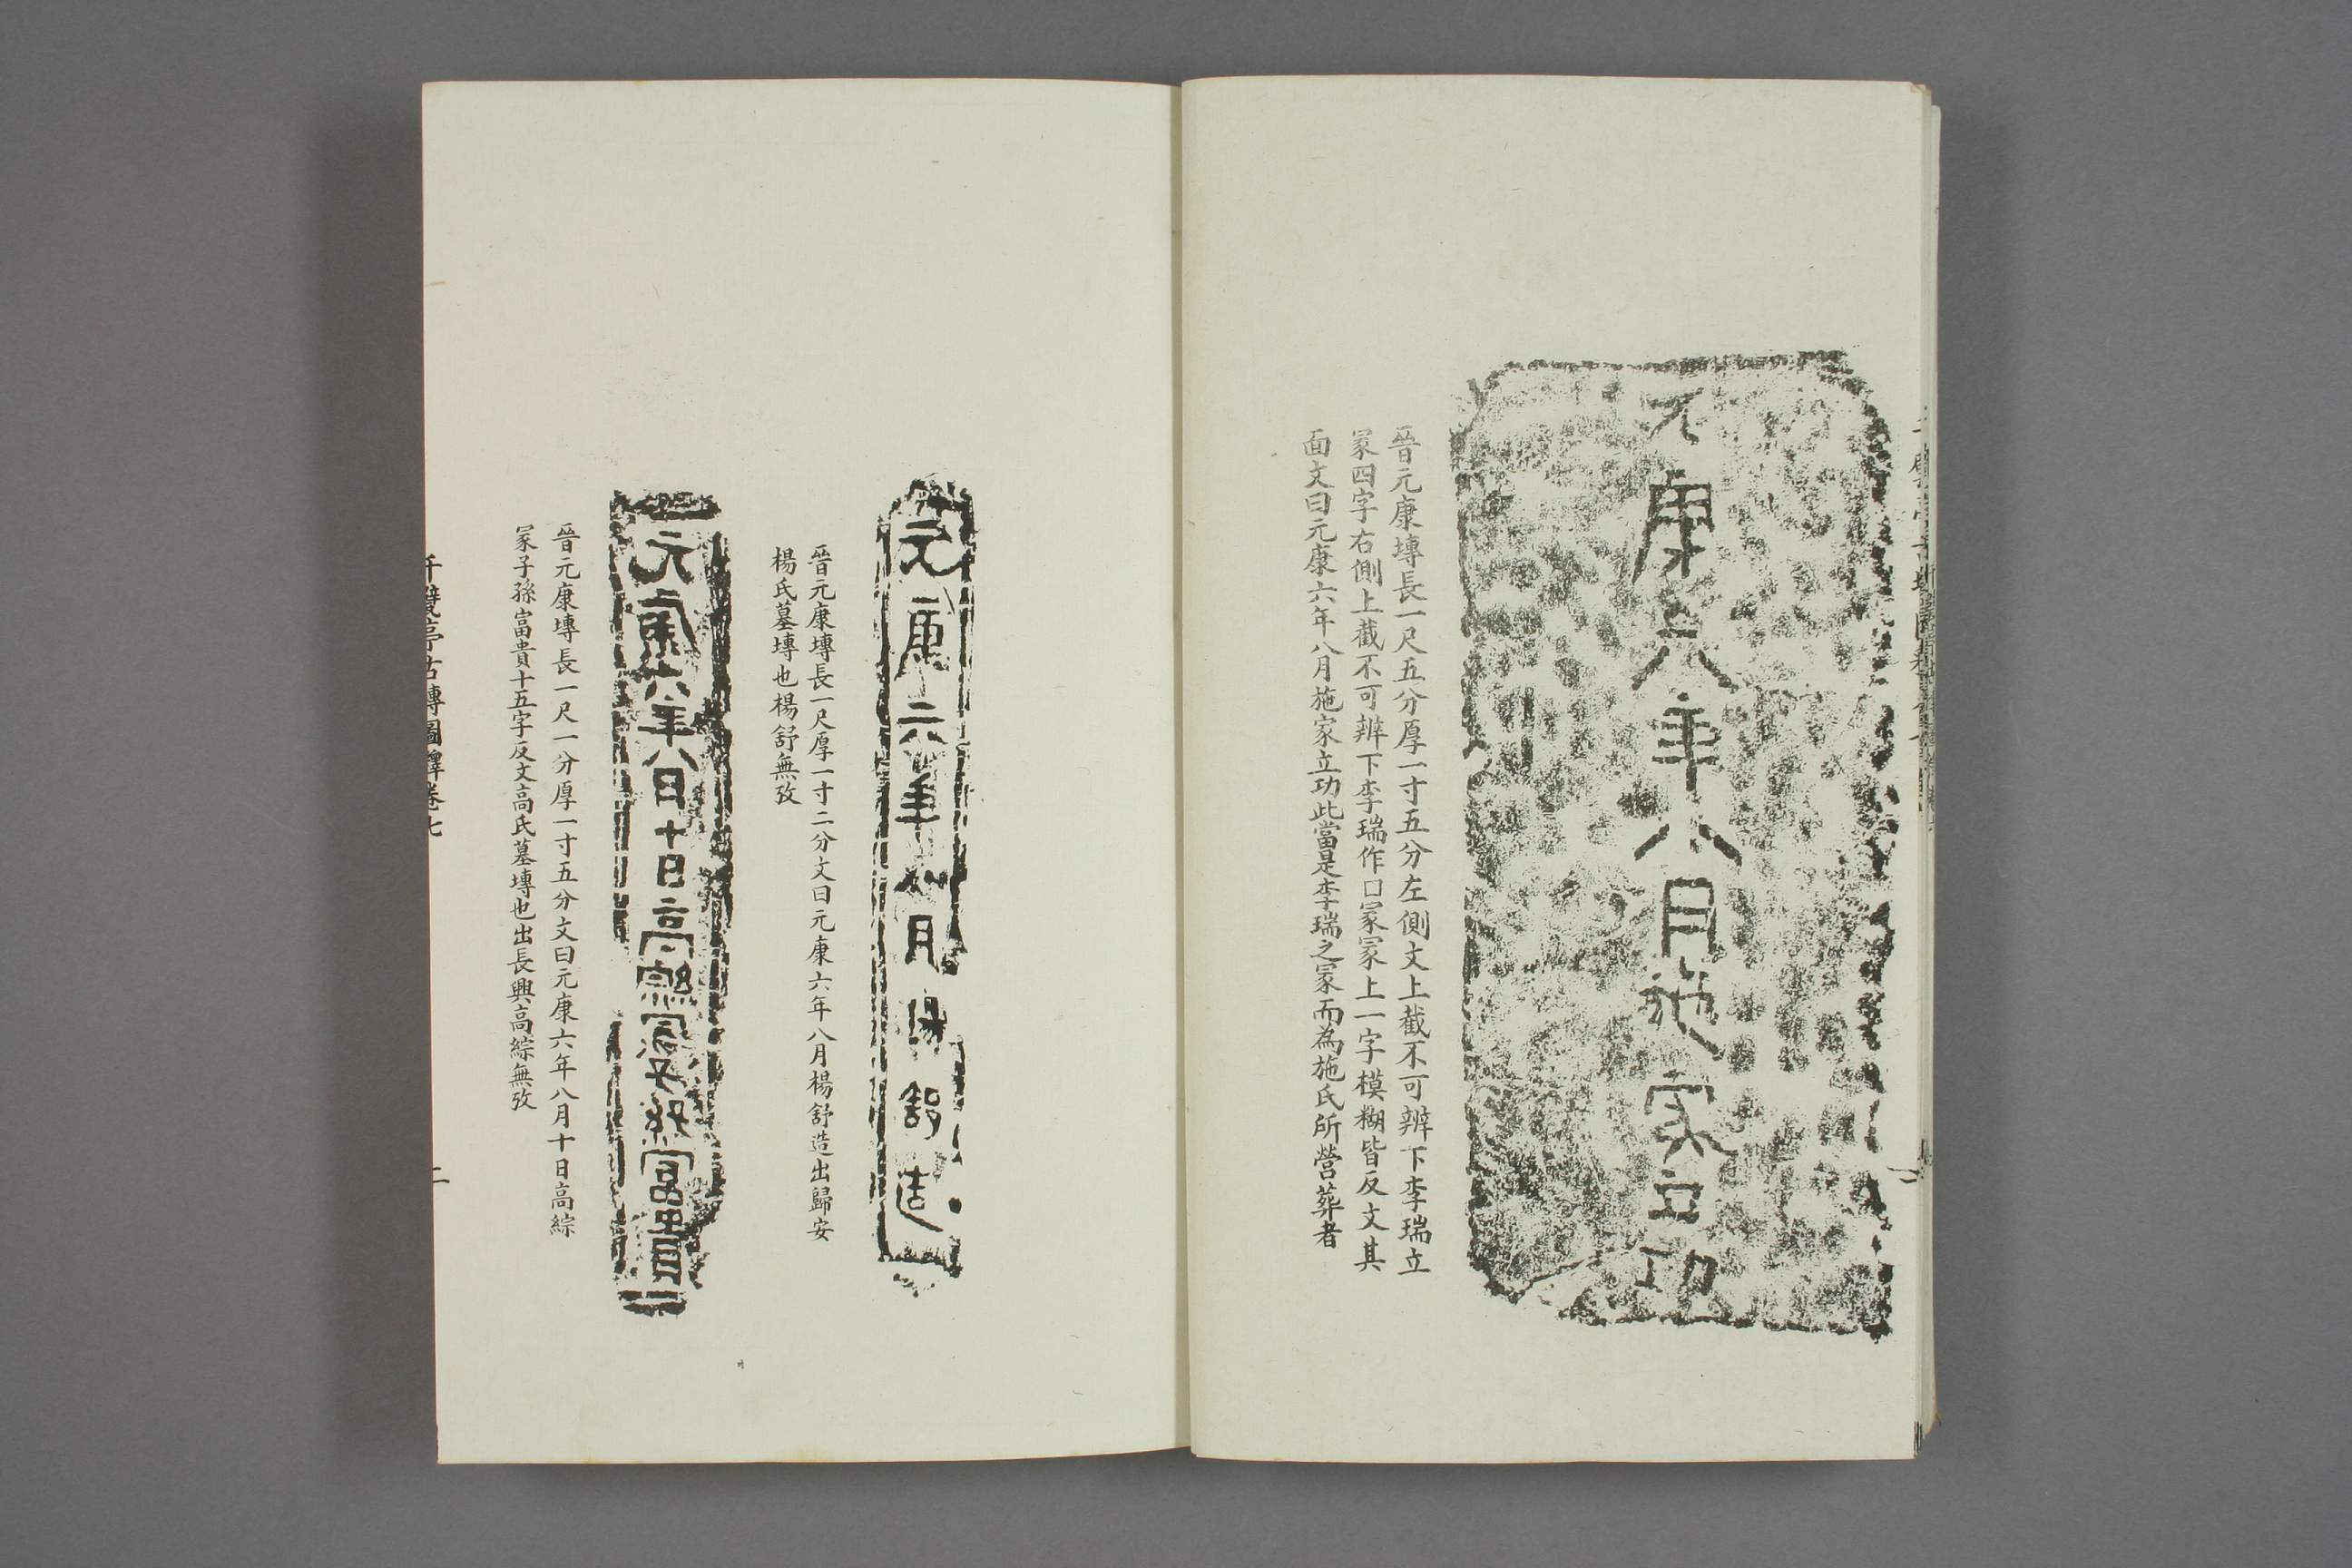 元康六年八月施家立功
晉元康塼長一尺五分厚一寸五分左側文上截不可辨下李瑞立
冢四字右側上截不可辨下李瑞作口冢冢上一字模糊皆反文其
面文曰元康六年八月施家立功此當是李瑞之冢而為施氏所營葬者
元康六年八月楊舒造
晉元康塼長一尺厚一寸二分文曰元康六年八月楊舒造出歸安
楊氏墓塼也楊舒無攷
元康六年八月十日高綜冢子孫富貴
晉元康塼長一尺一分厚一寸五分文曰元康六年八月十日高綜
冢子孫富貴十五字反文高氏墓塼也出長興高綜無攷
千甓亭古塼圖釋卷七
二